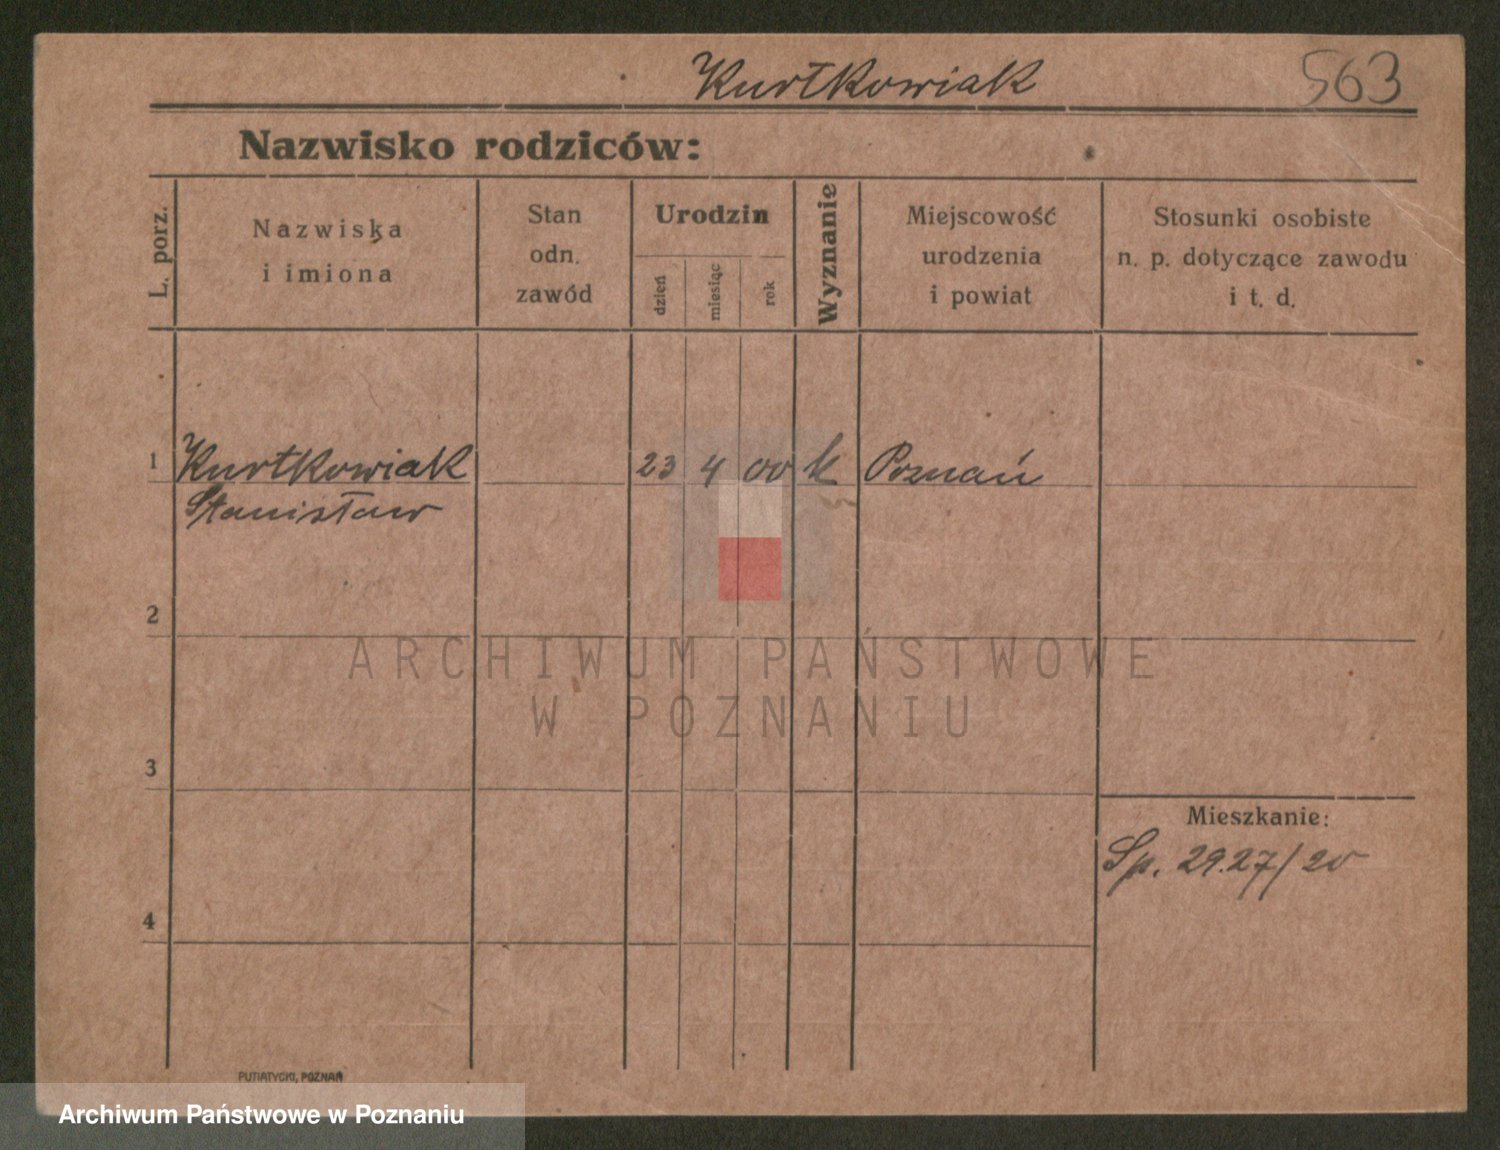 Kurtkowiak
563
Nazwisko rodziców:
L. porz.
Nazwiska
i imiona
Stan
odn.
zawód
Urodzin
dzień
miesiąc
rok
Wyznanie
Miejscowość
urodzenia
i powiat
Stosunki osobiste
n. p. dotyczące zawodu
i t. d.
1 Kurtkowiak 23 4 00 k Poznań
Stanisław
2
ARCHIWUM PAŃSTWOWE
W POZNANIU
3
Mieszkanie:
Sp. 29.27/20
4
PUTIATYCKI, POZNAŃ
Archiwum Państwowe w Poznaniu